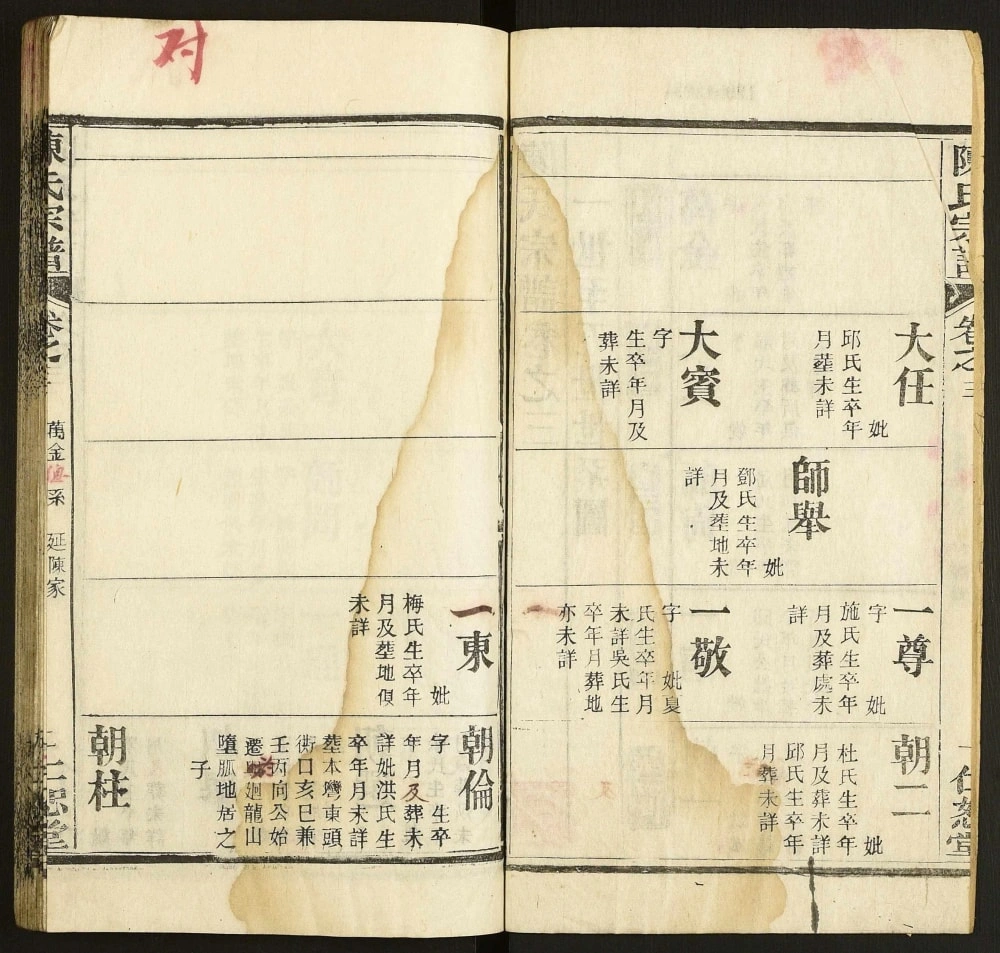 陳氏宗譜
卷之三
一
仁恕堂
大任
妣
邱氏生卒年
月塟未詳
大賓
字
生卒年月及
葬未詳
師舉
妣
鄧氏生卒年
月及塟地未
詳
一尊
字 妣
施氏生卒年
月及葬處未
詳
一敬
字 妣夏
氏生卒年月
未詳吳氏生
卒年月葬地
亦未詳
朝二
妣
杜氏生卒年
月及葬未詳
邱氏生卒年
月葬未詳
对
一東
妣
梅氏生卒年
月及塟地俱
未詳
朝倫
字 生卒
年月及葬未
詳妣洪氏生
卒年月未詳
塟本灣東頭
衖口亥巳兼
壬丙向公始
遷 廻龍山
墮胍地居之
子
朝柱
陳氏宗譜
卷之
萬金 系 延陳家